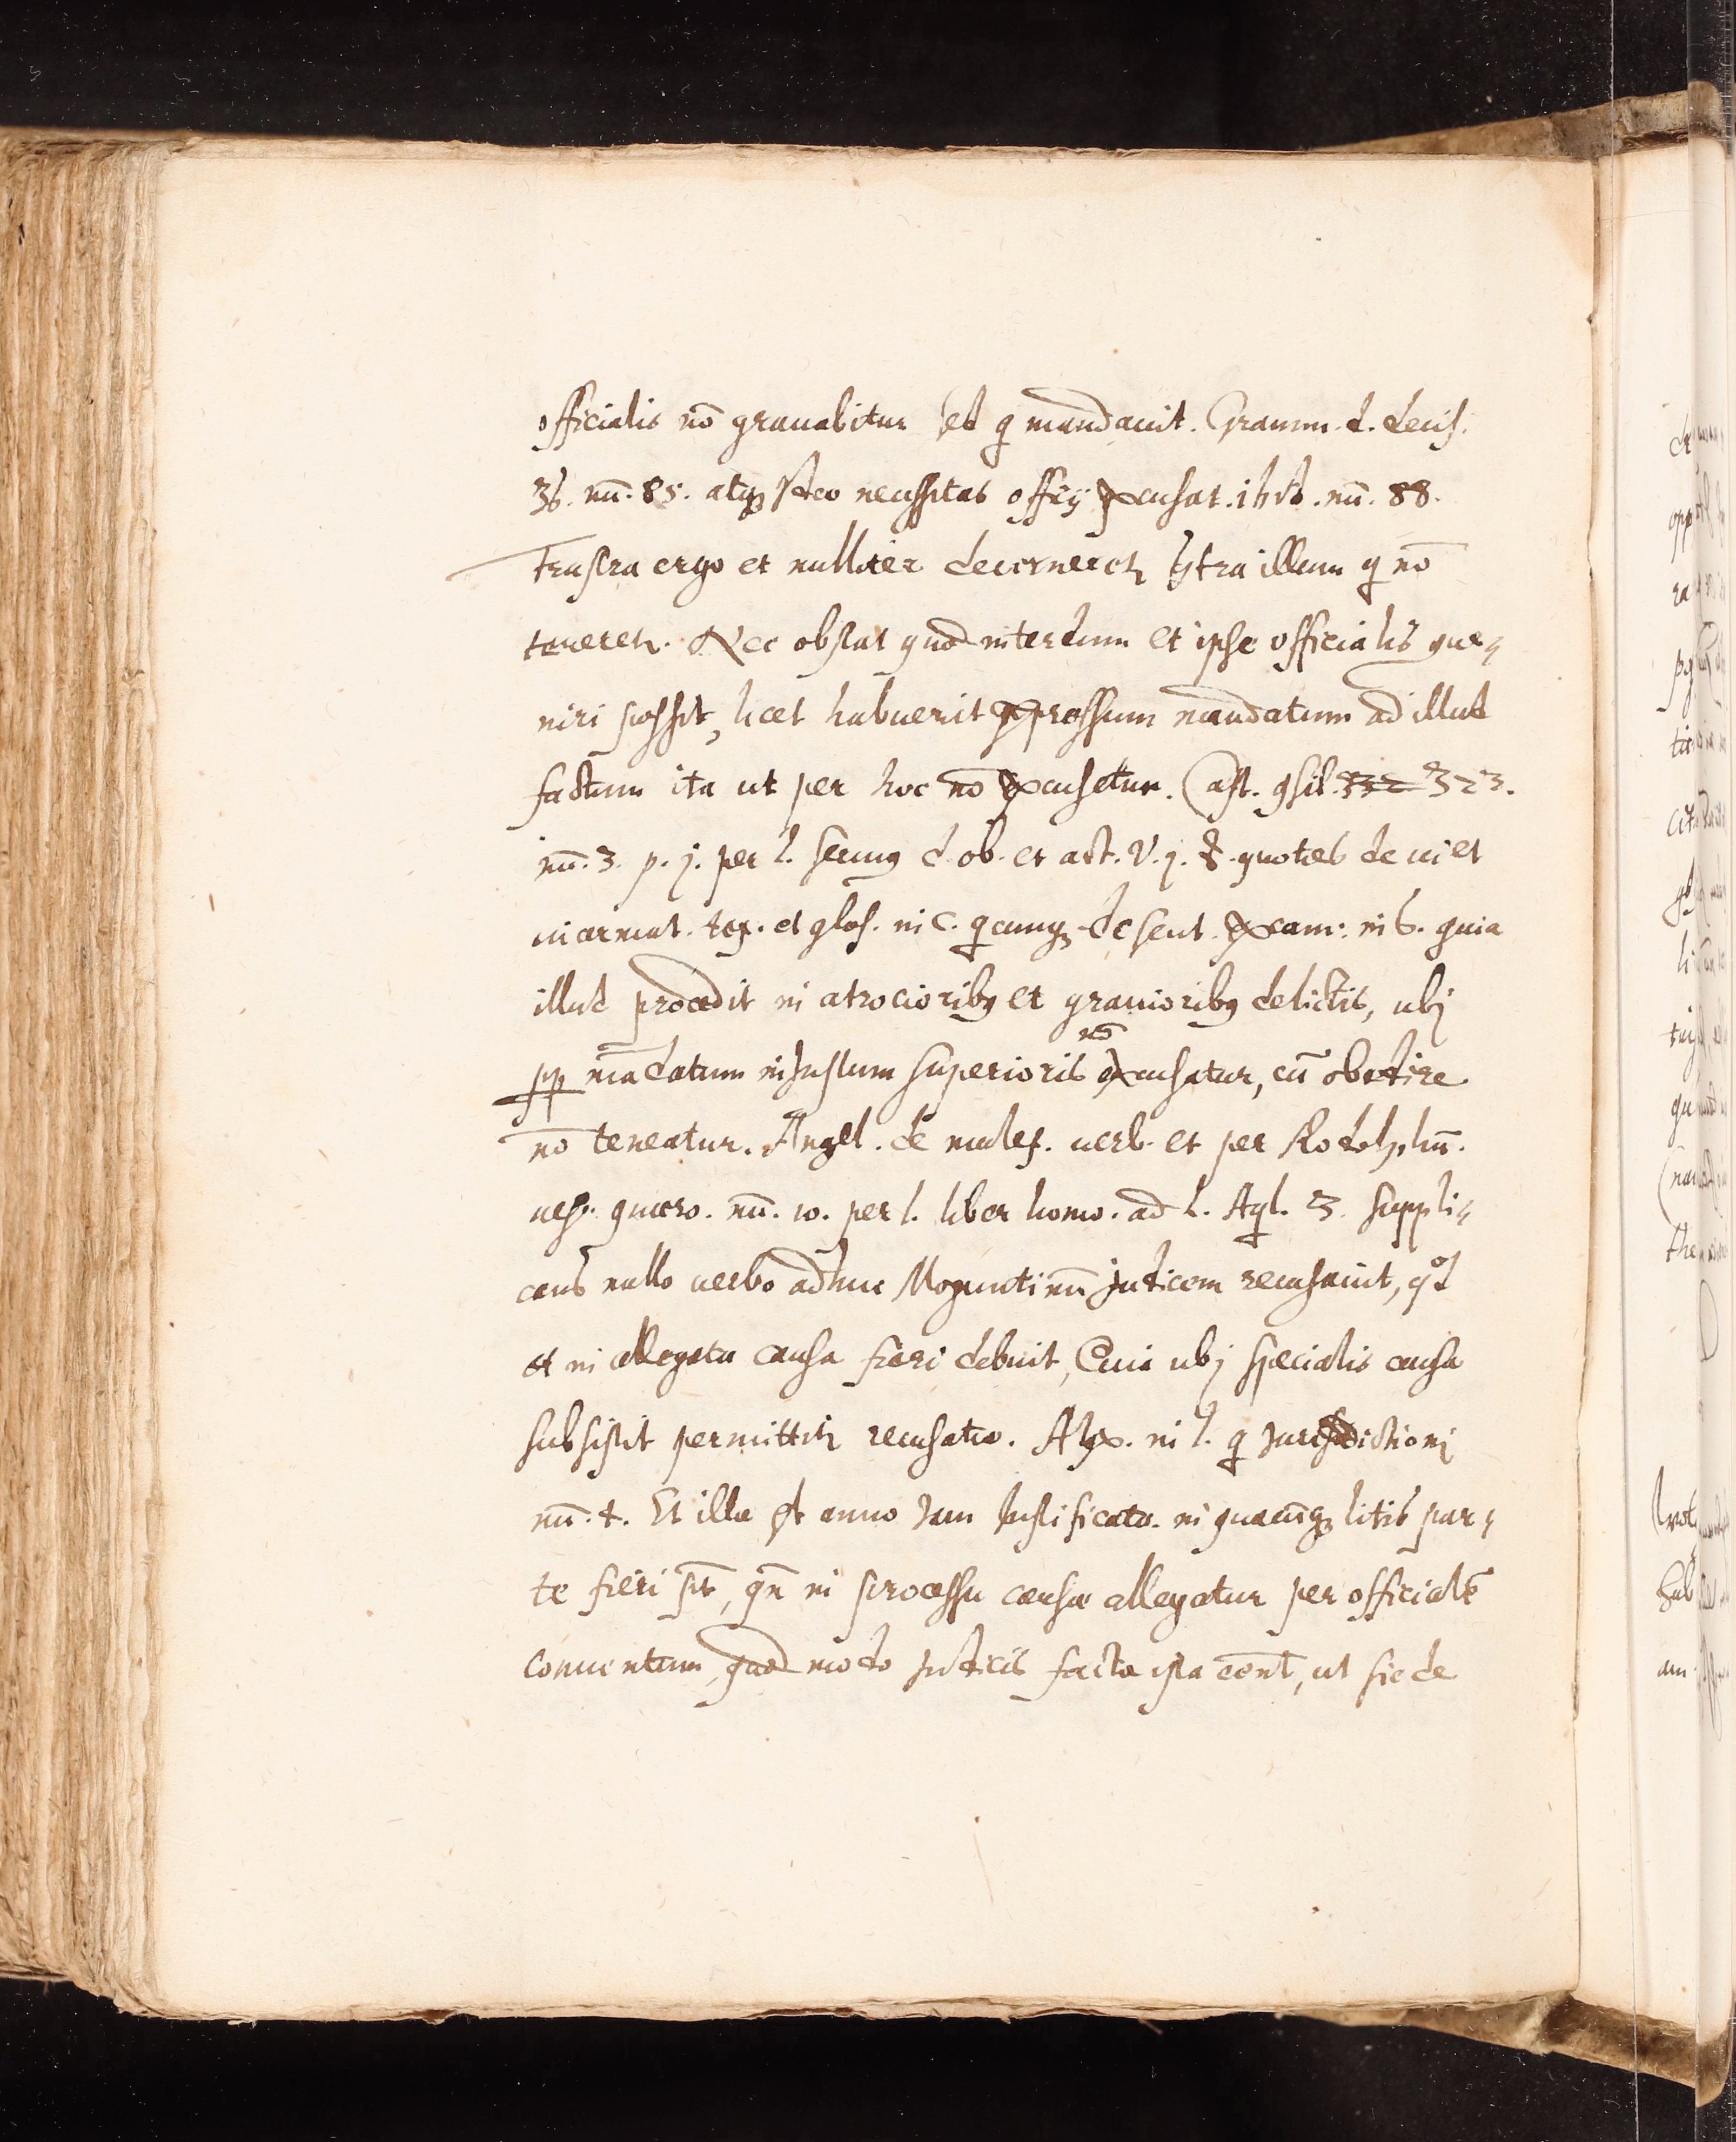 officialis nō grauabitur sed q mandauit. Gramm. d. decis.
36. nū. 85. atq; ideo necessitas officij excusat. ibid. nū. 88.
Frustra ergo et nulliter decerneret contra illum q nō
teneret. Nec obstat quod interdum et ipse officialis pue,
niri possit, licet habuerit expressum mandatum ad illud
factum ita ut per hoc nō excusetur. Cast. consil. 332 323.
nū. 3. p. j. per l. seruus d. ob. et act. V. j. §. quoties de ui et
ui armat. tex. et glos. in c. qcunq; de sent. excom. in 6. quia
illud procedit in atrocioribus et grauioribus delictis, ubj
pp mādatum iniustum superioris nō excusatur, cū obedire
nō teneatur. Angel. de malef. uerb. et per Rodolphū.
uers. quæro. nū. 10. per l. liber homo. ad l. Aql. 3. suppli,
cans nullo uerbo adhuc Moguntinū judicem recusauit, qd
et in allegata causa fieri debuit, Quia ubj specialis causa
subsistit permittit recusatio. Alex. in l. q Jurisdictionj
nū. t. Et illa pt anno Jam Justificato in quacūq; litis par,
te fieri pt, qn in processu causæ allegatur per officialē
conuentum, quod modo Judicis facta ista cont, ut sic de